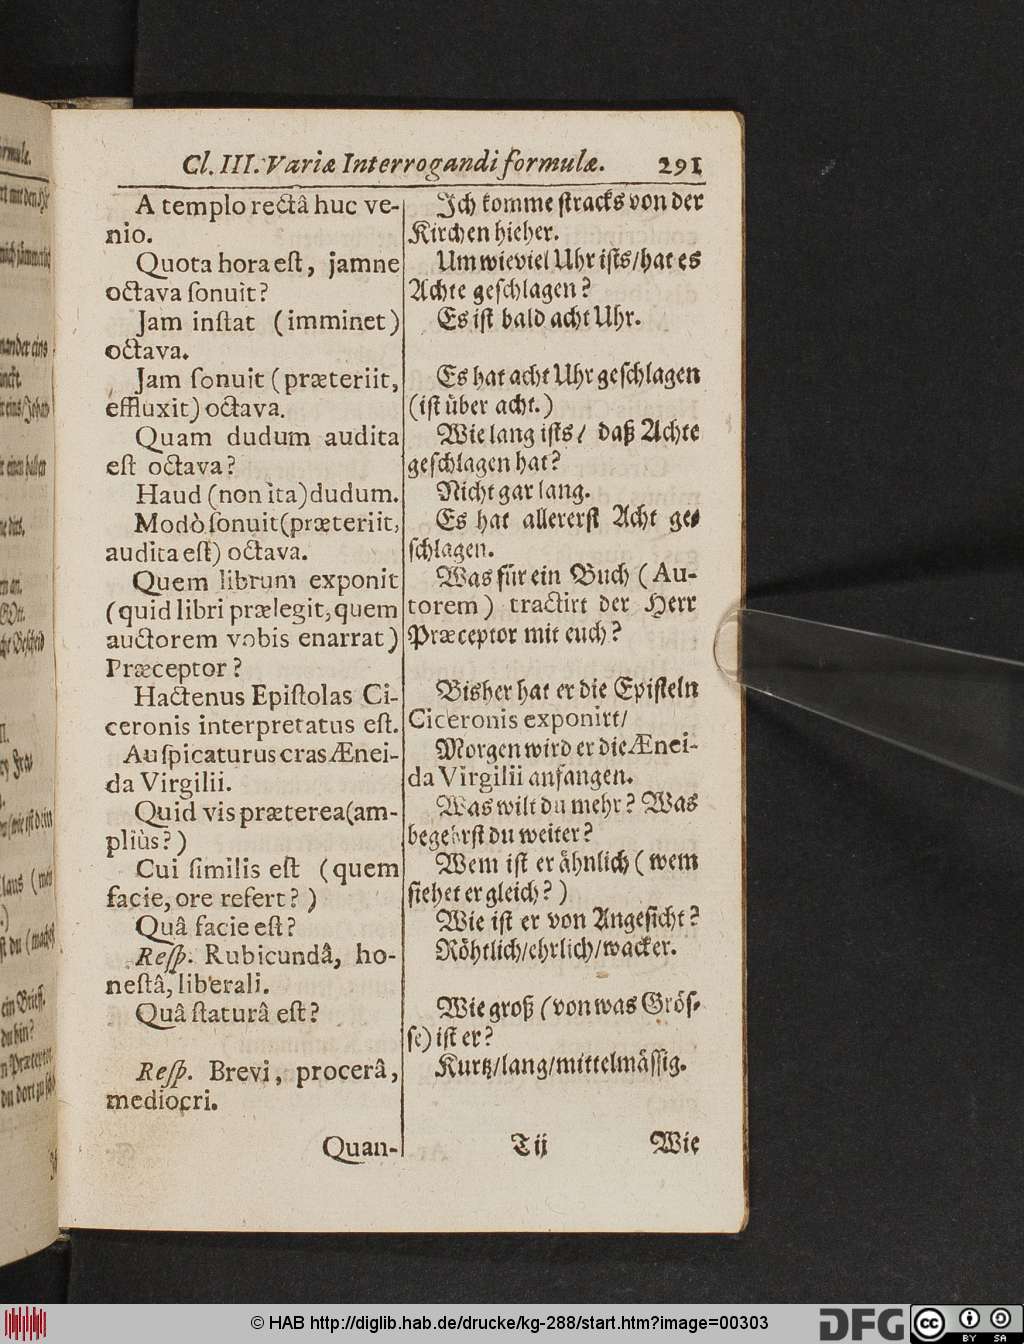 Cl. III. Variæ Interrogandi formulæ. 291
A templo rectâ huc ve-
nio.
Quota hora eſt, jamne
octava ſonuit?
Jam inſtat (imminet)
octava.
Jam ſonuit (præteriit,
effluxit) octava.
Quam dudum audita
eſt octava?
Haud (non ita) dudum.
Modò ſonuit (præteriit,
audita eſt) octava.
Quem librum exponit
(quid libri prælegit, quem
auctorem vobis enarrat)
Præceptor?
Hactenus Epiſtolas Ci-
ceronis interpretatus eſt.
Auſpicaturus cras Ænei-
da Virgilii.
Quid vis præterea (am-
pliùs?)
Cui ſimilis eſt (quem
facie, ore refert?)
Quâ facie eſt?
Reſp. Rubicundâ, ho-
neſtâ, liberali.
Quâ ſtaturâ eſt?
Reſp. Brevi, procerâ,
mediocri.
Quan-
Ich komme ſtracks von der
Kirchen hieher.
Um wieviel Uhr iſts/ hat es
Achte geſchlagen?
Es iſt bald acht Uhr.
Es hat acht Uhr geſchlagen
(iſt über acht.)
Wie lang iſts/ daß Achte
geſchlagen hat?
Nicht gar lang.
Es hat allererſt Acht ge-
ſchlagen.
Was für ein Buch (Au-
torem) tractirt der Herr
Præceptor mit euch?
Bisher hat er die Epiſteln
Ciceronis exponirt/
Morgen wird er die Ænei-
da Virgilii anfangen.
Was wilt du mehr? Was
begehrſt du weiter?
Wem iſt er ähnlich (wem
ſiehet er gleich?)
Wie iſt er von Angeſicht?
Röhtlich/ ehrlich/ wacker.
Wie groß (von was Gröſ-
ſe) iſt er?
Kurtz/ lang/ mittelmäſſig.
T ij Wie
© HAB http://diglib.hab.de/drucke/kg-288/start.htm?image=00303
DFG
cc BY SA